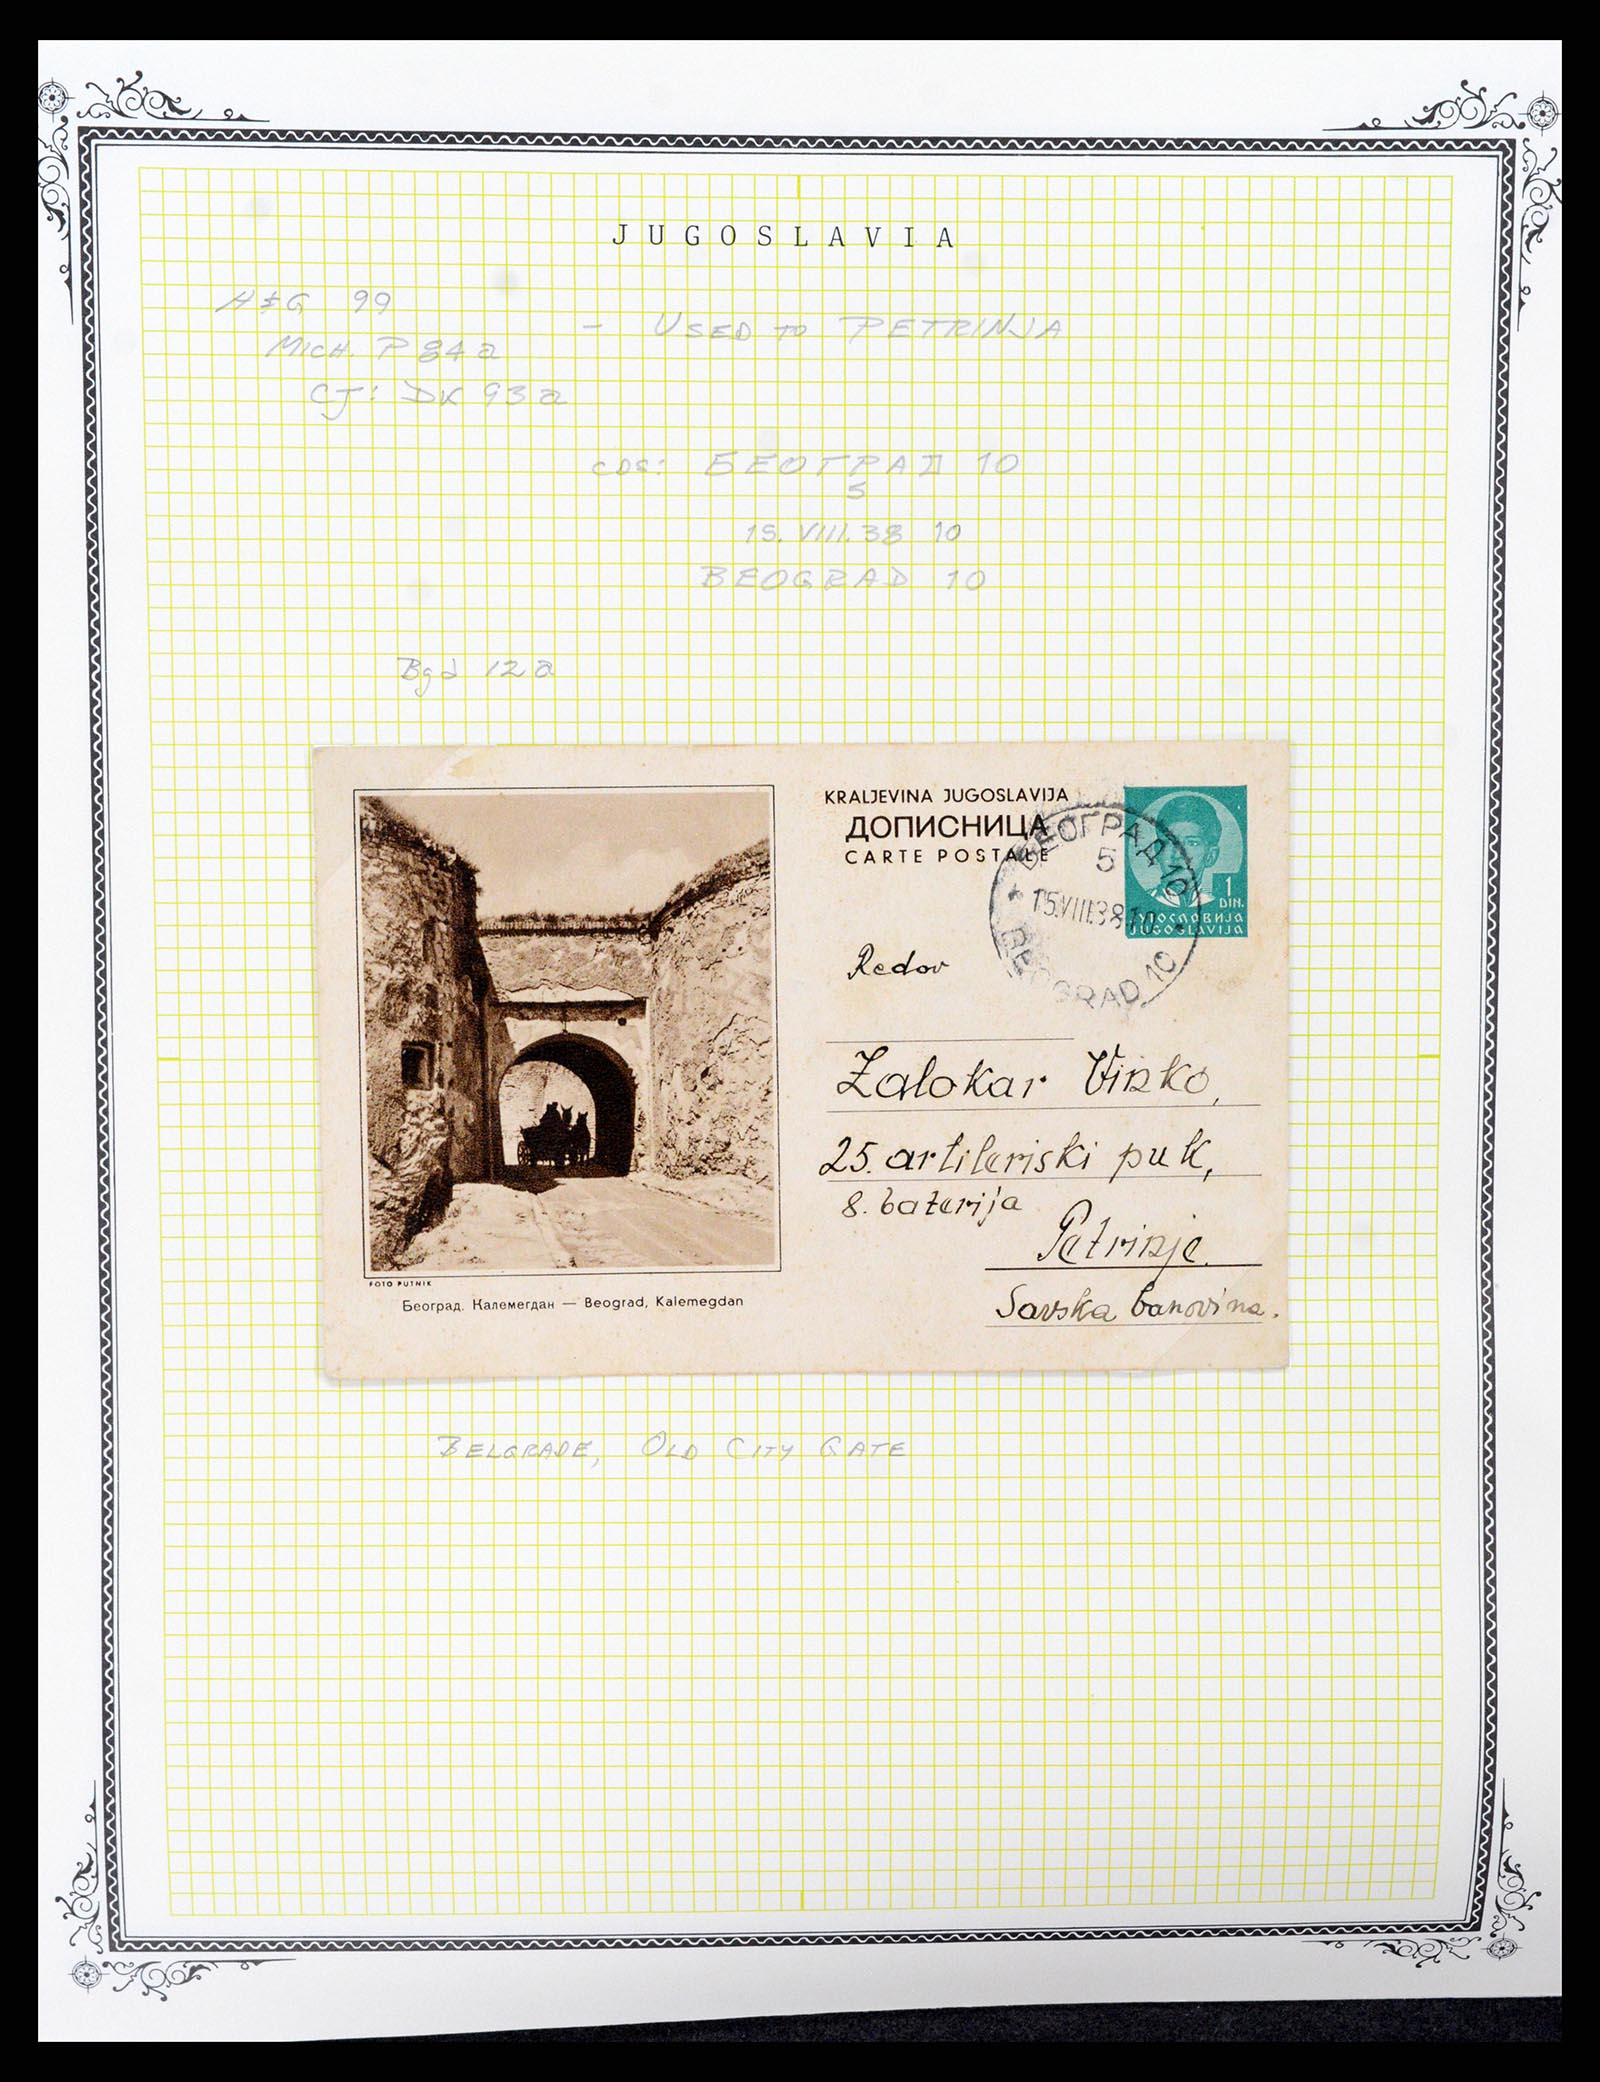 JUGOSLAVIA
H&G 99
Mich. P 84 a
CJ: DK 93 a
- USED TO PETRINJA
CDS: БЕОГРАД 10
5
15. VIII. 38 10
BEOGRAD 10
Bgd 12 a
KRALJEVINA JUGOSLAVIJA
ДОПИСНИЦА
CARTE POSTALE
БЕОГРАД 10
5
15.VIII.38 10
BEOGRAD 10
1
DIN.
ЈУГОСЛАВИЈА
JUGOSLAVIJA
Redov
Zalokar Vinko,
25. artileriski puk,
8. baterija
Petrinje.
Savska banovina.
FOTO PUTNIK
Београд. Калемегдан — Beograd, Kalemegdan
BELGRADE, OLD CITY GATE